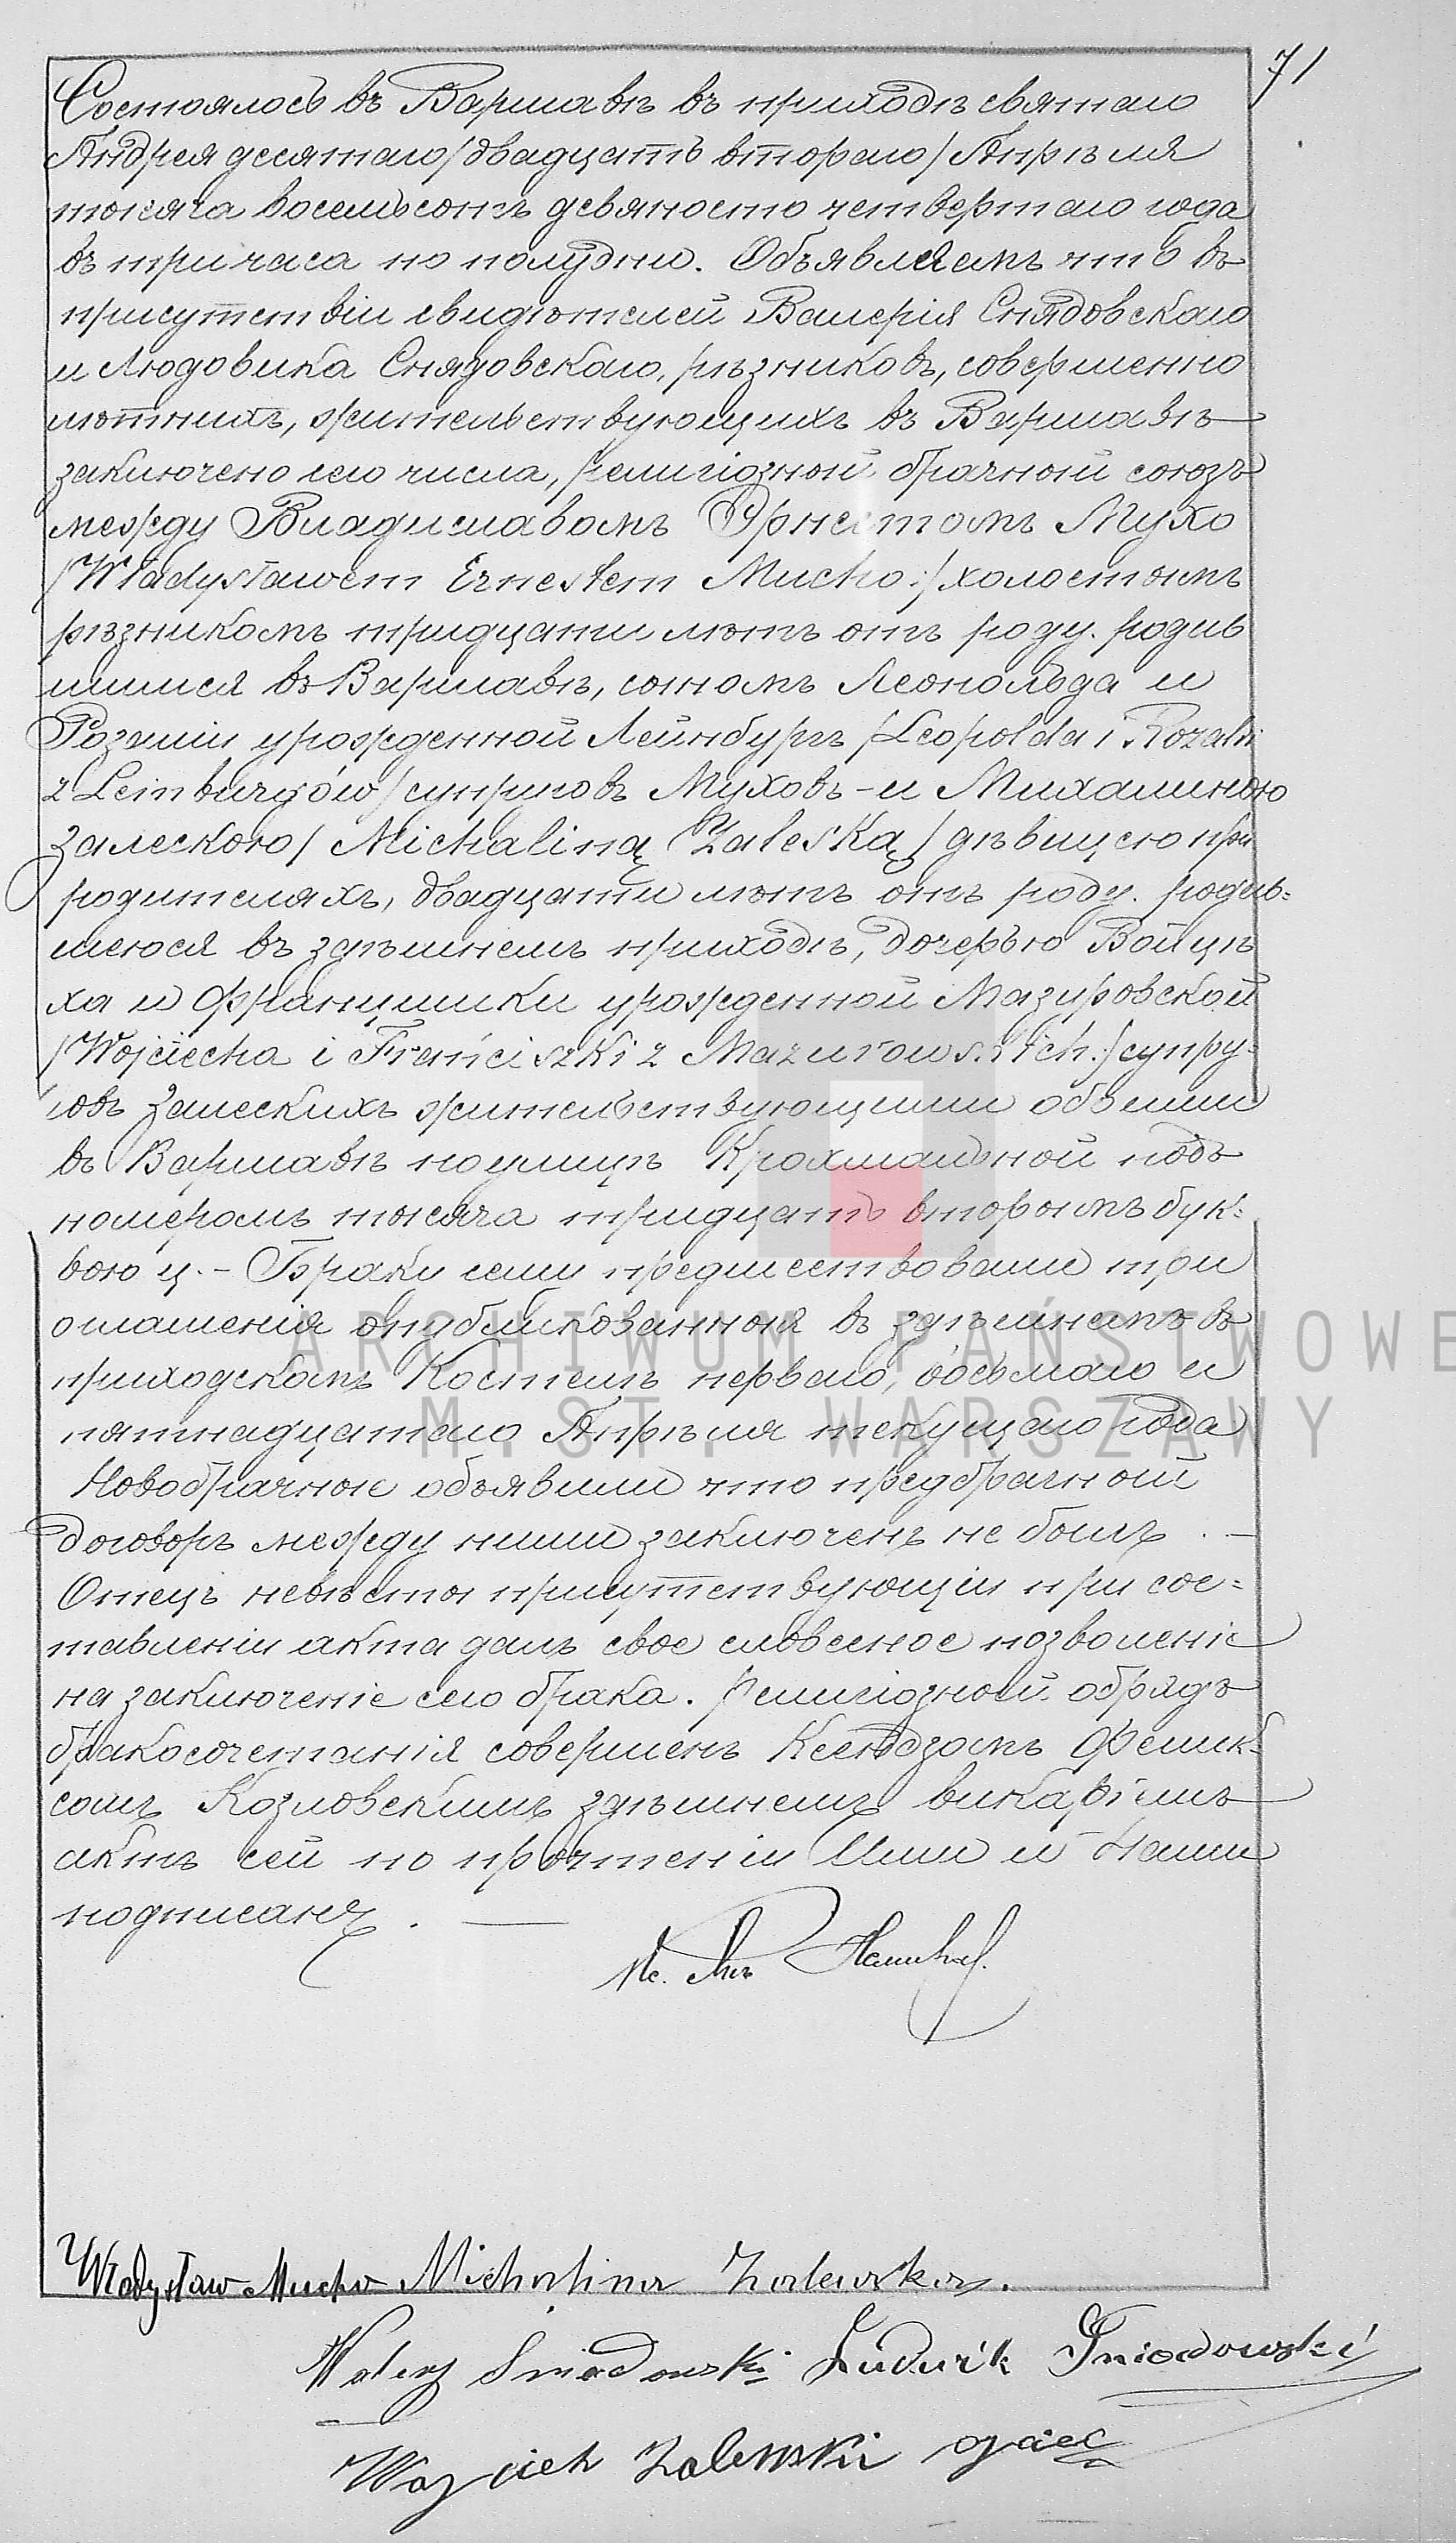 71
Состоялось въ Варшавѣ въ приходѣ святаго
Андрея десятаго /двадцать втораго/ Апрѣля
тысяча восемьсотъ девяносто четвертаго года
въ три часа по полудни. Объявляемъ что въ
присутствіи свидѣтелей Валерія Снядовскаго
и Людовика Снядовскаго, рѣзниковъ, совершенно
лѣтнихъ, жительствующихъ въ Варшавѣ
заключено сего числа, религіозный брачный союзъ
между Владиславомъ Эрнестомъ Мухо
/Władysławem Ernestem Mucho:/ холостымъ
рѣзникомъ тридцати лѣтъ отъ роду. родив
шимся въ Варшавѣ, сыномъ Леопольда и
Розаліи урожденной Лейнбургъ /Leopolda i Rozalii
z Leinburgów/ супруговъ Муховъ - и Михалиною
Залескою / Michaliną Zaleską / дѣвицею при
родителяхъ, двадцати лѣтъ отъ роду. родив=
шеюся въ здѣшнемъ приходѣ, дочерью Войцѣ
ха и Францишки урожденной Мазуровской
/Wojciecha i Franciszki z Mazurowskich:/ супру-
говъ Залескихъ жительствующими обоими
въ Варшавѣ по улицѣ Крохмальной подъ
номеромъ тысяча тридцать вторымъ бук=
вою ц. - Браку сему предшествовали три
оглашенія опубликованныя въ здѣшнемъ
приходскомъ Костелѣ перваго, восьмаго и
пятнадцатаго Апрѣля текущаго года
Новобрачные объявили что предбрачный
договоръ между ними заключенъ не былъ . —
Отецъ невѣсты присутствующій при сос=
тавленіи акта далъ свое словесное позволеніе
на заключеніе сего брака. Религіозный обрядъ
бракосочетанія совершенъ Ксендзомъ Фелик=
сомъ Козловскимъ здѣшнемъ викаріемъ
актъ сей по прочтеніи Ими и Нами
подписанъ. —
Władysław Mucho Michalina Zalewska.
Walery Śniadowski Ludwik Śniadowski
Wojciech Zalewski ojciec
ARCHIWUM PAŃSTWOWE
M.ST. WARSZAWY